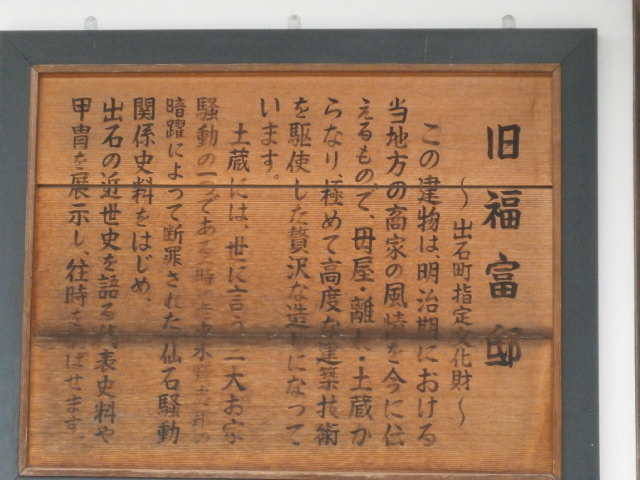 旧福富邸
～出石町指定文化財～
この建物は、明治期における
当地方の商家の風情を今に伝
えるもので、母屋・離れ・土蔵か
らなり、極めて高度な建築技術
を駆使した贅沢な造りになって
います。
土蔵には、世に言う三大お家
騒動の一つである時の
暗躍によって断罪された仙石騒動
関係史料をはじめ、
出石の近世史を語る代表史料や
甲冑を展示し、往時を偲ばせます。